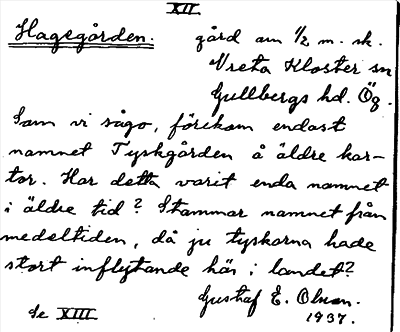 XII.
Hagegården. gård am 1/2 m. sk.
Vreta Kloster sn
Gullbergs hd. Ög.
Som vi sågo, förekom endast
namnet Tyskgården å äldre kar-
tor. Har detta varit enda namnet
i äldre tid? Stammar namnet från
medeltiden, då ju tyskarna hade
stort inflytande här i landet?
Gustaf E. Olsson.
Se XIII 1937.